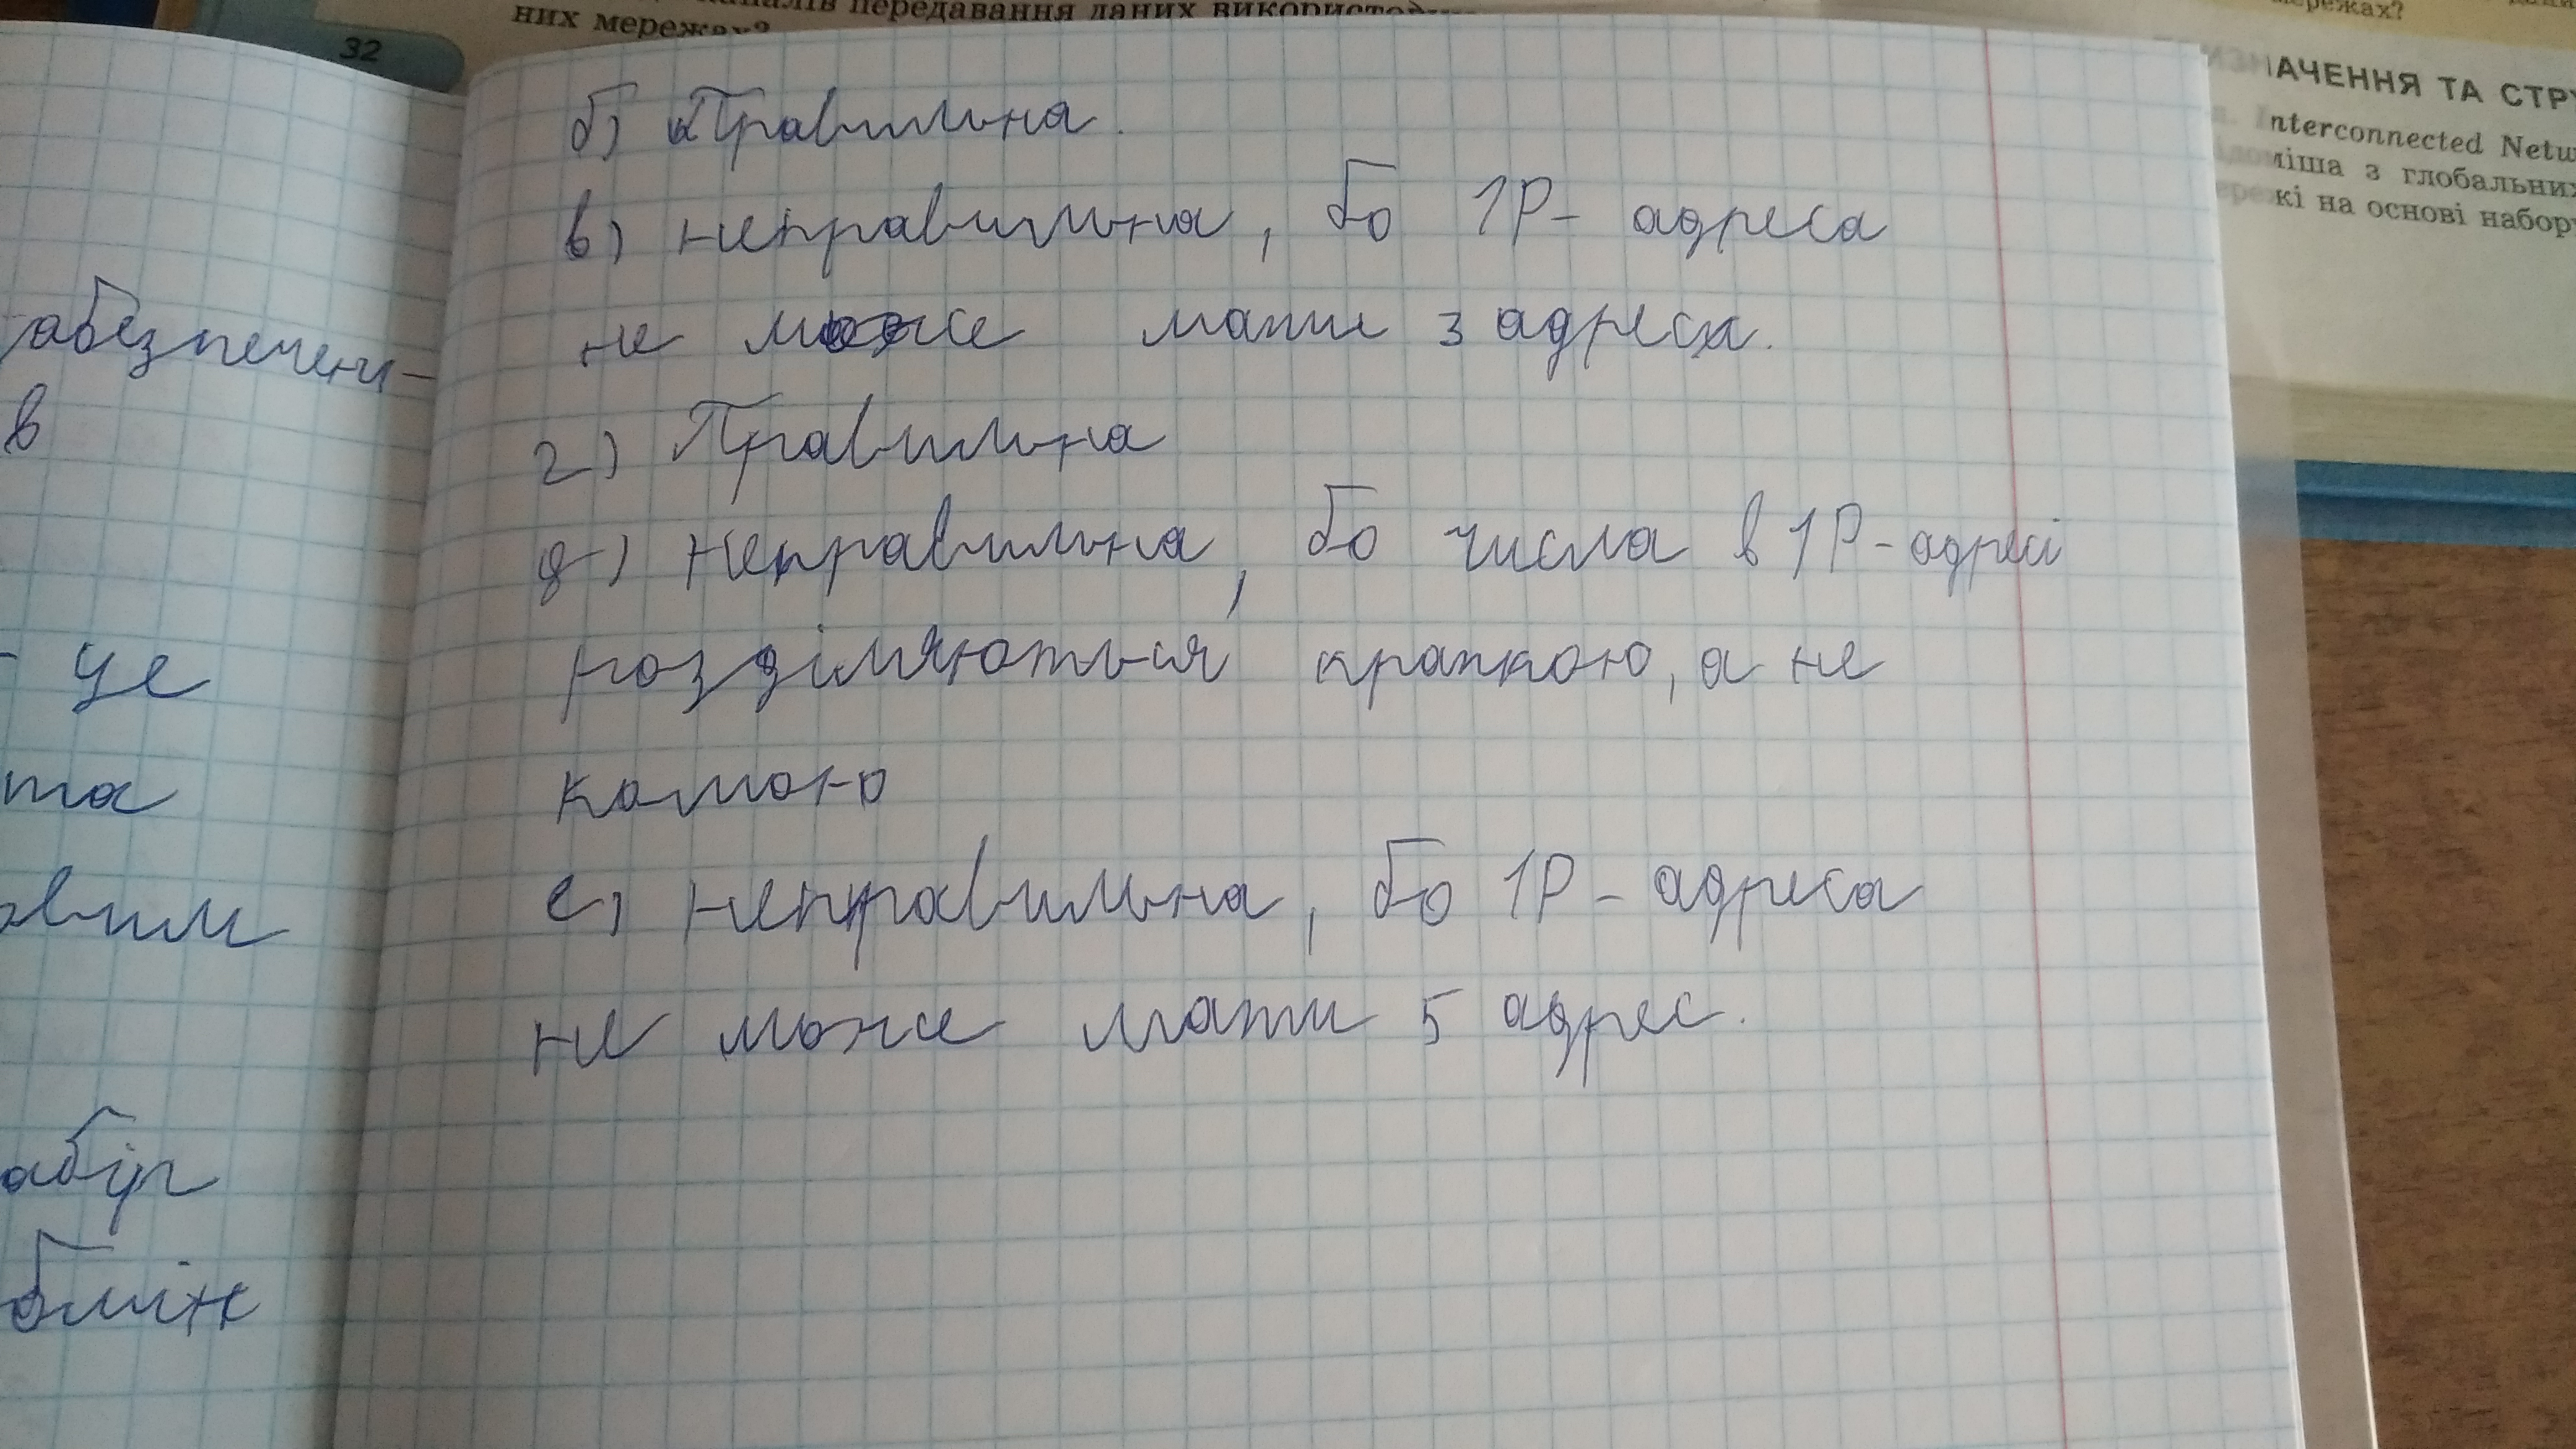 передавання даних
них мережах?
32
мережах?
АЧЕННЯ ТА СТР
Interconnected Netw
з глобальних
кі на основі набор
б) Правильна.
в) неправильна, бо ІР- адреса
не може мати 3 адреса.
г) Правильна
д) неправильна, бо числа в ІР-адресі
розділяються крапкою, а не
комою
е) неправильна, бо ІР- адреса
не може мати 5 адрес.
абезпечен-
в
- це
та